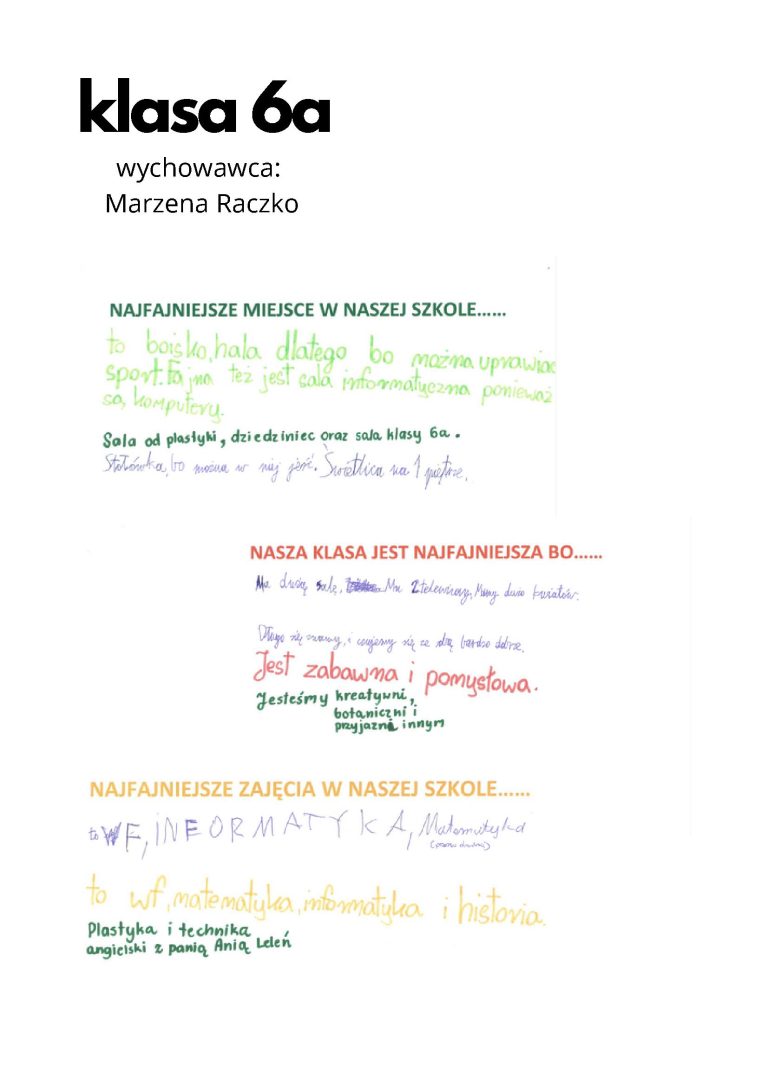 klasa 6a
wychowawca:
Marzena Raczko
NAJFAJNIEJSZE MIEJSCE W NASZEJ SZKOLE......
to boisko, hala dlatego bo można uprawiać
sport. Fajna też jest sala informatyczna ponieważ
są komputery.
Sala od plastyki, dziedziniec oraz sala klasy 6a.
Stołówka, bo można w niej jeść. Świetlica na 1 piętrze.
NASZA KLASA JEST NAJFAJNIEJSZA BO......
Ma dużą salę, Ma 2 telewizory, Mamy dużo kwiatów.
Długo się znamy, i czujemy się ze sobą bardzo dobrze.
Jest zabawna i pomysłowa.
Jesteśmy kreatywni,
botaniczni i
przyjaźni innym
NAJFAJNIEJSZE ZAJĘCIA W NASZEJ SZKOLE......
to WF, INFORMATYKA, Matematyka
to wf, matematyka, informatyka i historia.
Plastyka i technika
angielski z panią Anią Leleń